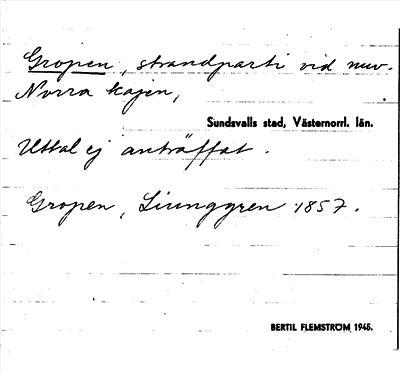 Gropen, strandparti vid nuv.
Norra kajen,
Sundsvalls stad, Västernorrl. län.
Uttal ej anträffat.
Gropen, Ljunggren 1857.
BERTIL FLEMSTRÖM 1945.